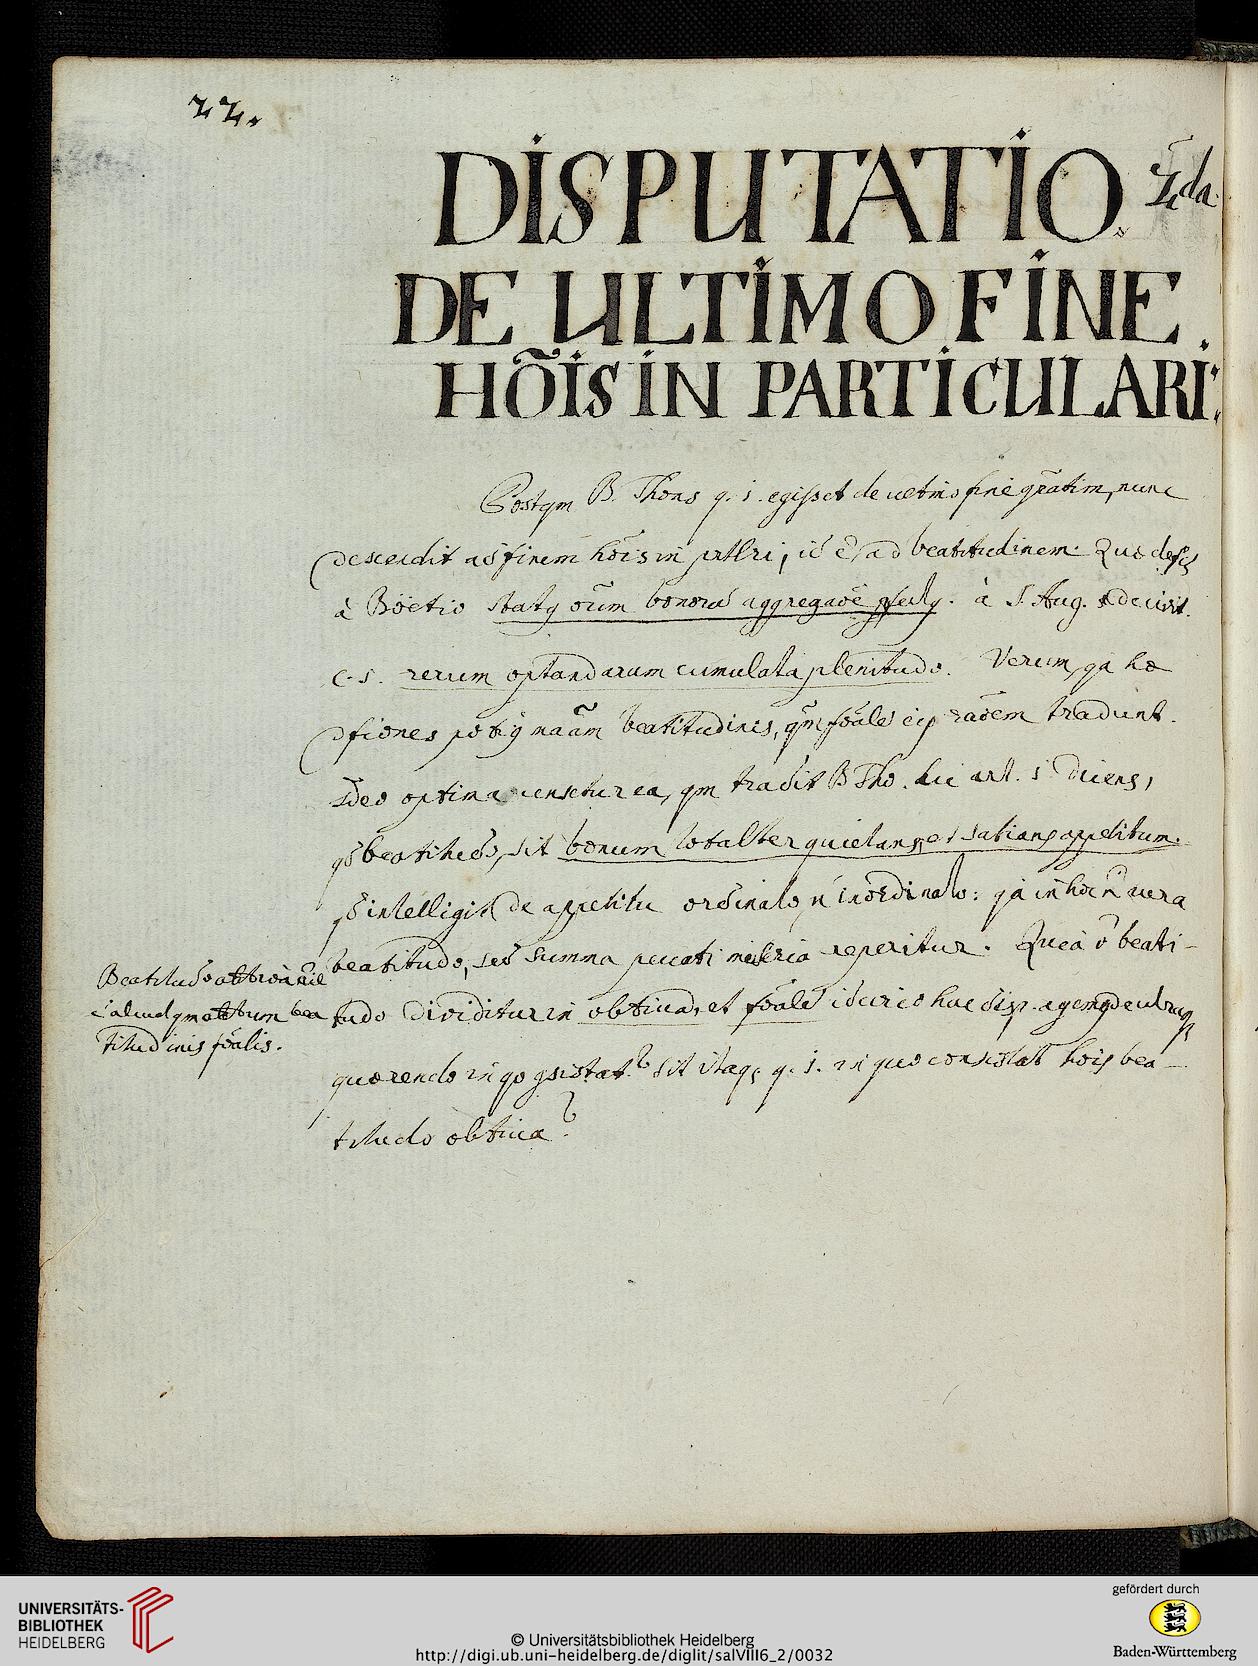 22.
DISPUTATIO 2da.
DE ULTIMO FINE.
HOĩS IN PARTICULARI:
Postqm B. Thoms q. 1. egisset de ultmo fine gñatim, nunc
descendit ad finem hõis in ptlri, id ẽ, ad beatitudinem. Quæ
à Böetio oīum bonorū aggregaõe à S. Aug. de civit.
c. 5. rerum optandarum cumulata plenitudo. Verum, qa hæ
beatitudinis, qm fõale eiꝰ raõem tradunt.
Ideo optima censetur ea, qm tradit B. Tho. hic art. 1. dicens,
qd beatitudo, sit bonum totalter quietans, et satians appetitum.
qd intelligit de appetitu ordinato, ñ inordinato: qa in hoc ñ vera
beatitudo, sed summa peccati miseria reperitur. Quia õ beati-
tudo dividitur in obtivā, et fõale idcirco hac disp. agemꝰ de utraqꝫ
quærendo in qo gsistat? Sit itaqꝫ q. 1. in quo consistat hõis bea-
titudo obtiva?
Beatitudo
ẽ aliud qm bea
titudinis fõalis.
UNIVERSITÄTS-
BIBLIOTHEK
HEIDELBERG
© Universitätsbibliothek Heidelberg
http://digi.ub.uni-heidelberg.de/diglit/salVIII6_2/0032
gefördert durch
Baden-Württemberg